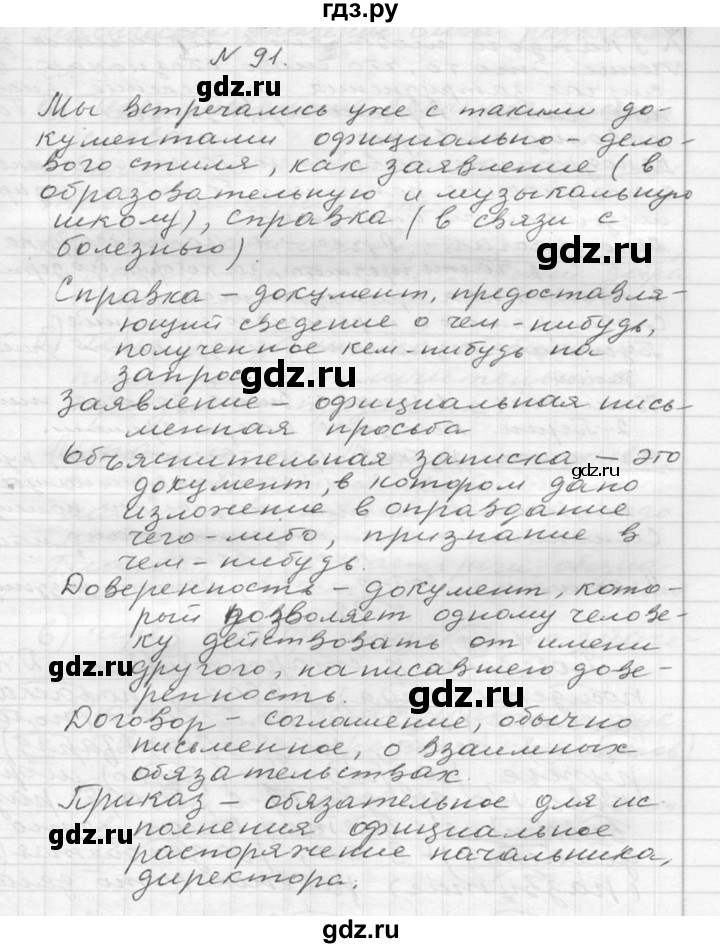 гдз.ру
N 91.
Мы встречались уже с такими до-
кументами официально-дело-
вого стиля, как заявление (в
образовательную и музыкальную
школу), справка (в связи с
болезнью)
gdz.ru
Справка – документ, предоставля-
ющий сведение о чем-нибудь,
полученное кем-нибудь по
запрос
gdz.ru
Заявление – официальная пись-
менная просьба
Объяснительная записка – это
gdz.ru
документ, в котором дано
изложение в оправдание
чего-либо, признание в
чем-нибудь.
Доверенность – документ, кото-
рый позволяет одному челове-
ку действовать от имени
gdz.ru
другого, написавшего дове-
ренность.
gdz.ru
Договор – соглашение, обычно
письменное, о взаимных
обязательствах.
Приказ – обязательное для ис
gdz.ru
полнения официальное
распоряжение начальника,
директора.
gdz.ru